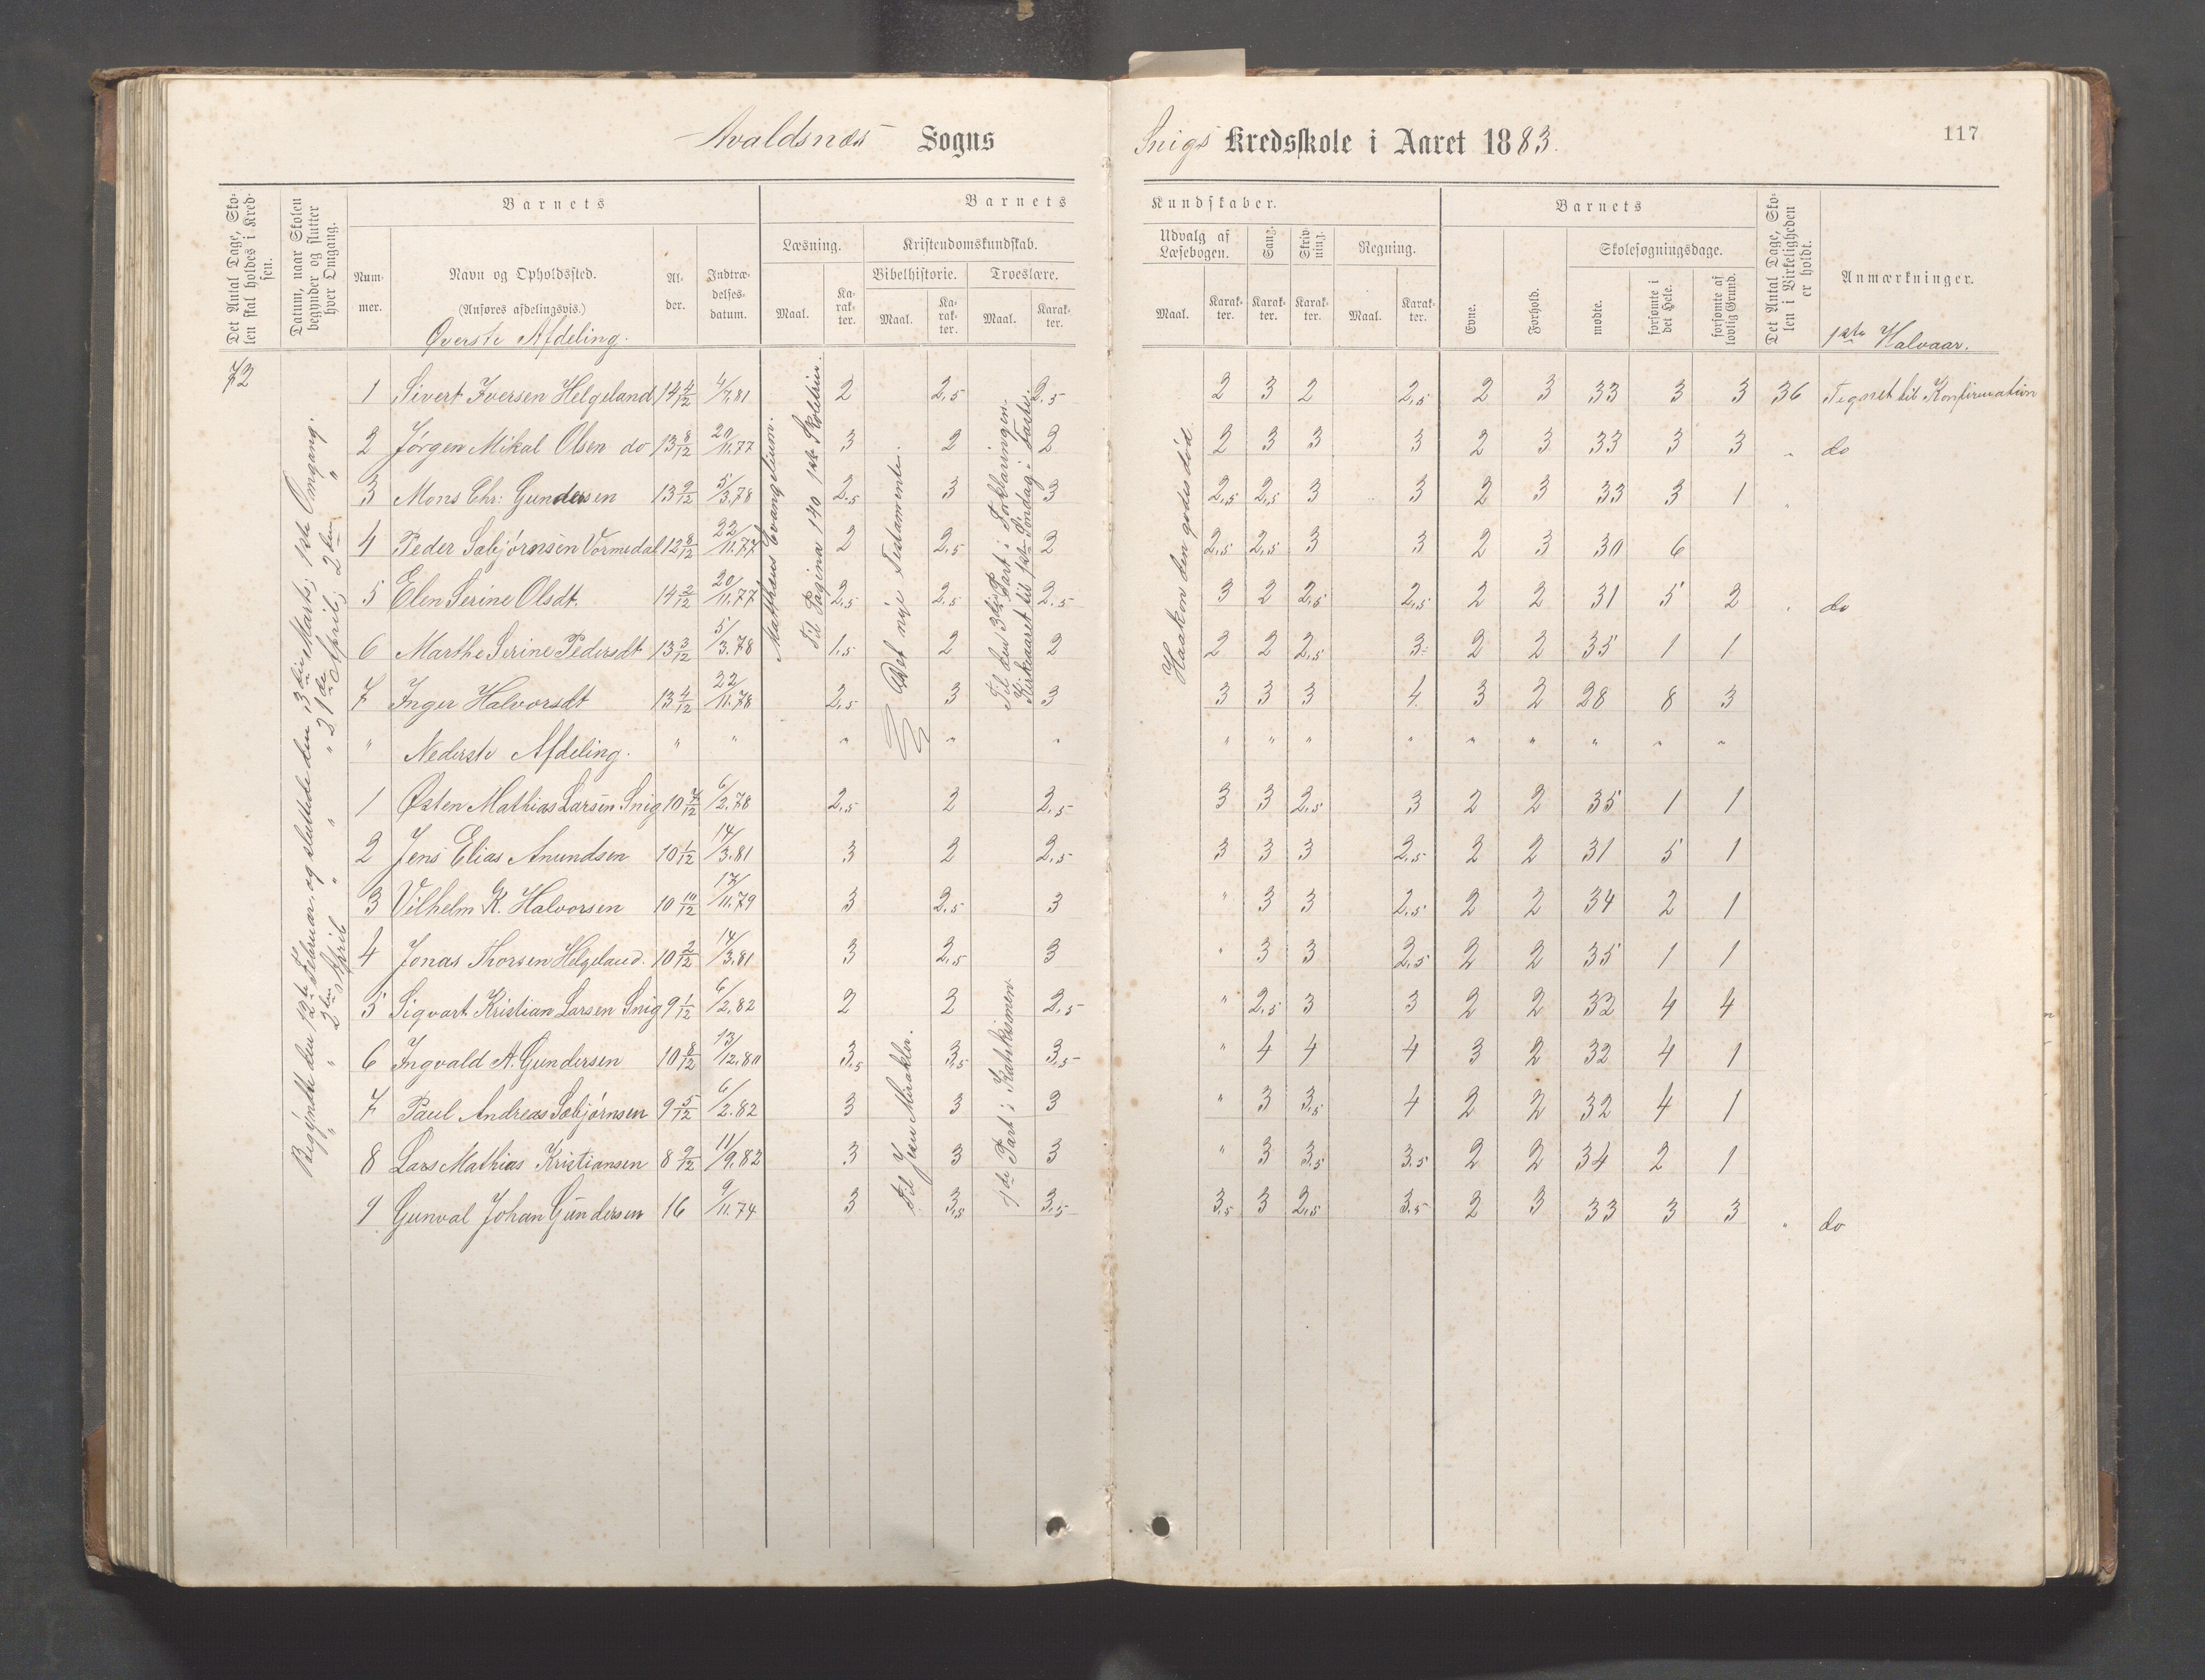 Avaldsnæs Sogns
Snigs Kredsskole i Aaret 1883.
117
Det Antal Dage, Skolen skal holdes i Kredsen.
Datum, naar Skolen begynder og slutter hver Omgang.
Barnets
Nummer.
Navn og Opholdssted.
(Anføres afdelingsvis.)
Øverste Afdeling.
Alder.
Indtrædelsesdatum.
Barnets
Læsning.
Kristendomskundskab.
Bibelhistorie.
Troeslære.
Maal. Karakter. Maal. Karakter. Maal. Karakter.
Kundskaber.
Udvalg af Læsebogen.
Sang.
Skrivning.
Regning.
Maal. Karakter. Karakter. Karakter. Maal. Karakter.
Barnets
Evne.
Forhold.
Skolesøgningsdage.
mødte.
forsømte i det Hele.
forsømte af lovlig Grund.
Det Antal Dage, Skolen i Virkeligheden er holdt.
Anmærkninger.
1ste Halvaar.
72
Begyndte den 12te Februar og sluttede den 3die Marts; 1ste Omgang.
" " 2den April " " " 21de April; 2den "
Matthæus Evangelium.
Til Pagina 140 1ste Skoletrin.
Det nye Testamente.
Til den 3die Part i Forklaringen.
Kirkeaaret til 1ste Søndag i Faste.
Haakon den godes død.
1 Sivert Iversen Helgeland 14 4/12 4/7.81 2 2,5 2,5 2 3 2 2,5 2 3 33 3 3 36 Tegnet til Konfirmation
2 Jørgen Mikal Olsen do 13 8/12 20/11.77 3 2 2 2 3 3 3 2 3 33 3 3 " do
3 Mons Chr: Gundersen 13 9/12 5/3.78 2,5 3 3 2,5 2,5 3 3 2 3 33 3 1 "
4 Peder Sæbjørnsen Vormedal 12 8/12 22/11.77 2 2,5 2 2,5 2,5 3 3 2 3 30 6
5 Elen Serine Olsdt. 14 2/12 20/11.77 2,5 2,5 2,5 3 2 2,5 2,5 2 2 31 5 2 " do
6 Marthe Serine Pedersdt 13 3/12 5/3.78 1,5 2 2 2 2 2,5 3 2 2 35 1 1
7 Inger Halvorsdt 13 4/12 22/11.78 2,5 3 3 3 3 3 4 3 2 28 8 3
" Nederste Afdeling. " " " " " " " " " " " " " "
Til Jesu Mirakler.
1ste Part i Katekismen
1 Østen Mathias Larsen Snig 10 7/12 6/2.78 2,5 2 2,5 3 3 2,5 3 2 2 35 1 1
2 Jens Elias Amundsen 10 1/12 14/3.81 3 2 2,5 3 3 3 2,5 2 2 31 5 1
3 Vilhelm K. Halvorsen 10 10/12 17/11.79 3 2,5 3 " 3 3 2,5 2 2 34 2 1
4 Jonas Thorsen Helgeland. 10 2/12 14/3.81 3 2,5 3 " 3 3 2,5 2 2 35 1 1
5 Sigvart Kristian Larsen Snig 9 1/12 6/2.82 2 2 2,5 " 2,5 3 3 2 2 32 4 4
6 Ingvald A. Gundersen 10 8/12 13/12.80 3,5 3,5 3,5 " 4 4 4 3 2 32 4 1
7 Paul Andreas Sæbjørnsen 9 5/12 6/2.82 3 3 3 " 3 3,5 4 2 2 32 4 1
8 Lars Mathias Kristiansen 8 9/12 11/9.82 3 3 3 " 3 3,5 3,5 2 2 34 2 1
9 Gunval Johan Gundersen 16 9/11.74 3 3,5 3,5 3,5 3 2,5 3,5 2 3 33 3 3 " do